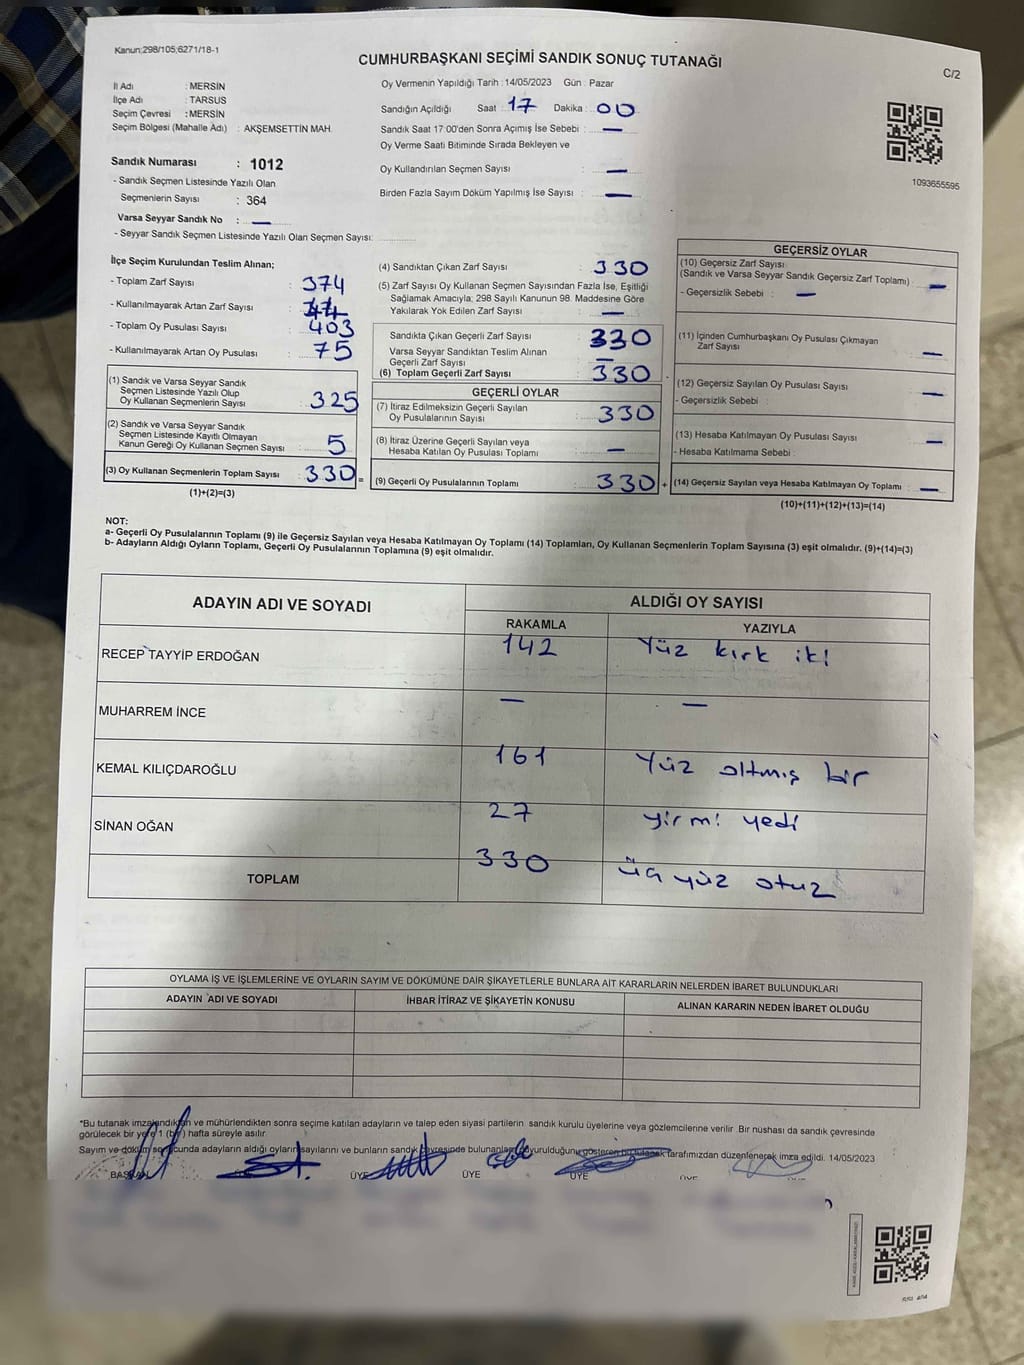 Kanun:298/105;6271/18-1
CUMHURBAŞKANI SEÇİMİ SANDIK SONUÇ TUTANAĞI
C/2
İl Adı : MERSİN
İlçe Adı : TARSUS
Seçim Çevresi : MERSİN
Seçim Bölgesi (Mahalle Adı) : AKŞEMSETTİN MAH.
Sandık Numarası : 1012
- Sandık Seçmen Listesinde Yazılı Olan
Seçmenlerin Sayısı : 364
Varsa Seyyar Sandık No : —
- Seyyar Sandık Seçmen Listesinde Yazılı Olan Seçmen Sayısı:
Oy Vermenin Yapıldığı Tarih : 14/05/2023 Gün : Pazar
Sandığın Açıldığı Saat : 17 Dakika : 00
Sandık Saat 17:00'den Sonra Açımış İse Sebebi : —
Oy Verme Saati Bitiminde Sırada Bekleyen ve
Oy Kullandırılan Seçmen Sayısı : —
Birden Fazla Sayım Döküm Yapılmış İse Sayısı : —
1093655595
İlçe Seçim Kurulundan Teslim Alınan;
- Toplam Zarf Sayısı : 374
- Kullanılmayarak Artan Zarf Sayısı : 44
- Toplam Oy Pusulası Sayısı : 403
- Kullanılmayarak Artan Oy Pusulası : 75
(1) Sandık ve Varsa Seyyar Sandık
Seçmen Listesinde Yazılı Olup
Oy Kullanan Seçmenlerin Sayısı : 325
(2) Sandık ve Varsa Seyyar Sandık
Seçmen Listesinde Kayıtlı Olmayan
Kanun Gereği Oy Kullanan Seçmen Sayısı : 5
(3) Oy Kullanan Seçmenlerin Toplam Sayısı : 330 =
(1)+(2)=(3)
(4) Sandıktan Çıkan Zarf Sayısı : 330
(5) Zarf Sayısı Oy Kullanan Seçmen Sayısından Fazla İse, Eşitliği
Sağlamak Amacıyla; 298 Sayılı Kanunun 98. Maddesine Göre
Yakılarak Yok Edilen Zarf Sayısı : —
Sandıkta Çıkan Geçerli Zarf Sayısı : 330
Varsa Seyyar Sandıktan Teslim Alınan
Geçerli Zarf Sayısı : —
(6) Toplam Geçerli Zarf Sayısı : 330
GEÇERLİ OYLAR
(7) İtiraz Edilmeksizin Geçerli Sayılan
Oy Pusulalarının Sayısı : 330
(8) İtiraz Üzerine Geçerli Sayılan veya
Hesaba Katılan Oy Pusulası Toplamı : —
(9) Geçerli Oy Pusulalarının Toplamı : 330 +
GEÇERSİZ OYLAR
(10) Geçersiz Zarf Sayısı
(Sandık ve Varsa Seyyar Sandık Geçersiz Zarf Toplamı) : —
- Geçersizlik Sebebi : —
(11) İçinden Cumhurbaşkanı Oy Pusulası Çıkmayan
Zarf Sayısı : —
(12) Geçersiz Sayılan Oy Pusulası Sayısı : —
- Geçersizlik Sebebi :
(13) Hesaba Katılmayan Oy Pusulası Sayısı : —
- Hesaba Katılmama Sebebi :
(14) Geçersiz Sayılan veya Hesaba Katılmayan Oy Toplamı : —
(10)+(11)+(12)+(13)=(14)
NOT:
a- Geçerli Oy Pusulalarının Toplamı (9) ile Geçersiz Sayılan veya Hesaba Katılmayan Oy Toplamı (14) Toplamları, Oy Kullanan Seçmenlerin Toplam Sayısına (3) eşit olmalıdır. (9)+(14)=(3)
b- Adayların Aldığı Oyların Toplamı, Geçerli Oy Pusulalarının Toplamına (9) eşit olmalıdır.
ADAYIN ADI VE SOYADI ALDIĞI OY SAYISI
RAKAMLA YAZIYLA
RECEP TAYYİP ERDOĞAN 142 Yüz kırk iki
MUHARREM İNCE — —
KEMAL KILIÇDAROĞLU 161 Yüz altmış bir
SİNAN OĞAN 27 yirmi yedi
TOPLAM 330 üç yüz otuz
OYLAMA İŞ VE İŞLEMLERİNE VE OYLARIN SAYIM VE DÖKÜMÜNE DAİR ŞİKAYETLERLE BUNLARA AİT KARARLARIN NELERDEN İBARET BULUNDUKLARI
ADAYIN ADI VE SOYADI İHBAR İTİRAZ VE ŞİKAYETİN KONUSU ALINAN KARARIN NEDEN İBARET OLDUĞU
*Bu tutanak imzalandıktan ve mühürlendikten sonra seçime katılan adayların ve talep eden siyasi partilerin sandık kurulu üyelerine veya gözlemcilerine verilir. Bir nüshası da sandık çevresinde
görülecek bir yere 1 (bir) hafta süreyle asılır.
Sayım ve döküm sonucunda adayların aldığı oyların sayılarını ve bunların sandık çevresinde bulunanlara duyurulduğunu gösteren bu tutanak tarafımızdan düzenlenerek imza edildi. 14/05/2023
BAŞKAN ÜYE ÜYE ÜYE ÜYE